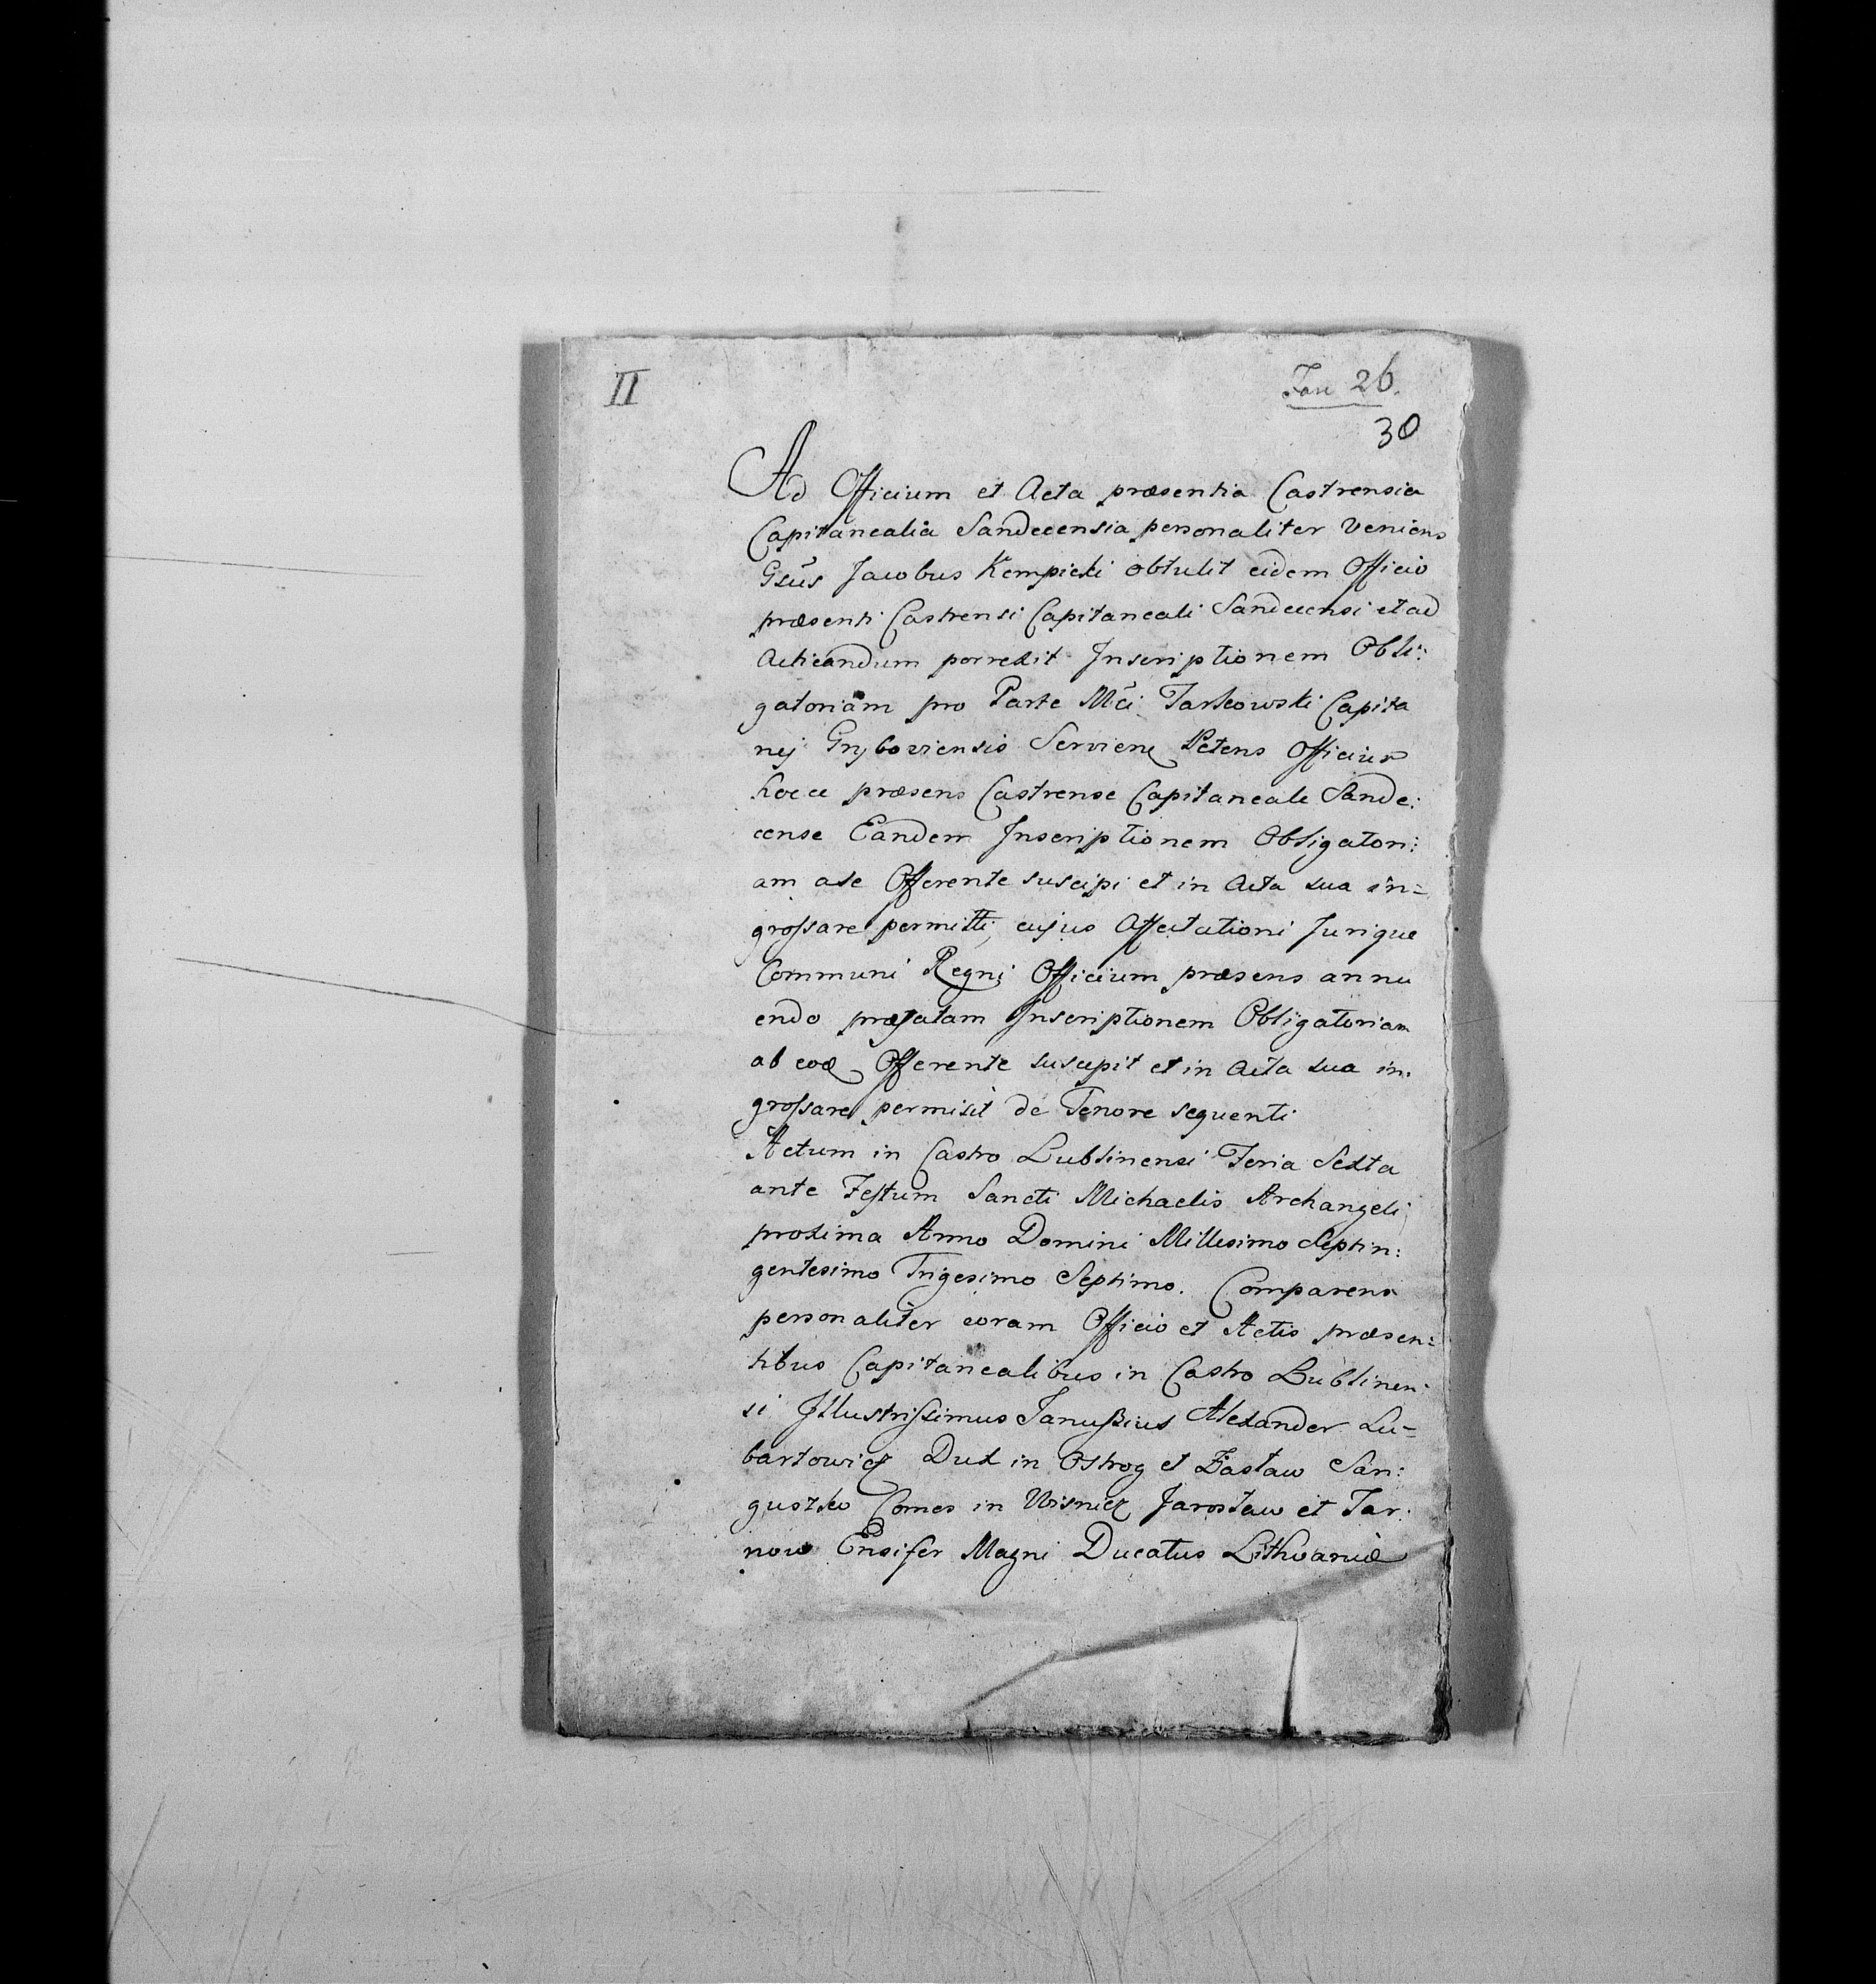 II
Fasc 26.
30
Ad Officium et Acta præsentia Castrensia
Capitanealia Sandecensia personaliter veniens
Gsũs Jacobus Kempicki obtulit eidem Officio
præsenti Castrensi Capitaneali Sandecensi et ad
Acticandum porrexit Inscriptionem Obli:
gatoriam pro Parte Mci Tarkowski Capita
nej Grybowiensis Servien Petens Officium
hocce præsens Castrense Capitaneale Sande:
cense Eandem Inscriptionem Obligatori:
am a se Offerente suscipi et in Acta sua in=
grossare permitti, cujus Affectationi Jurique
Communi Regni Officium præsens annu
endo præfatam Inscriptionem Obligatoriam
ab eod Offerente suscepit et in Acta sua in:
grossare permisit de Tenore sequenti
Actum in Castro Lublinensi Feria Sexta
ante Festum Sancti Michaelis Archangeli
proxima Anno Domini Millesimo Septin:
gentesimo Trigesimo Septimo. Comparens
personaliter coram Officio et Actis præsen:
tibus Capitanealibus in Castro Lublinen:
si Illustrissimus Janussius Alexander Lu=
bartowicz Dux in Ostrog et Zasław San:
guszko Comes in Wisnicz Jarosław et Tar:
now Ensifer Magni Ducatus Lithvaniæ